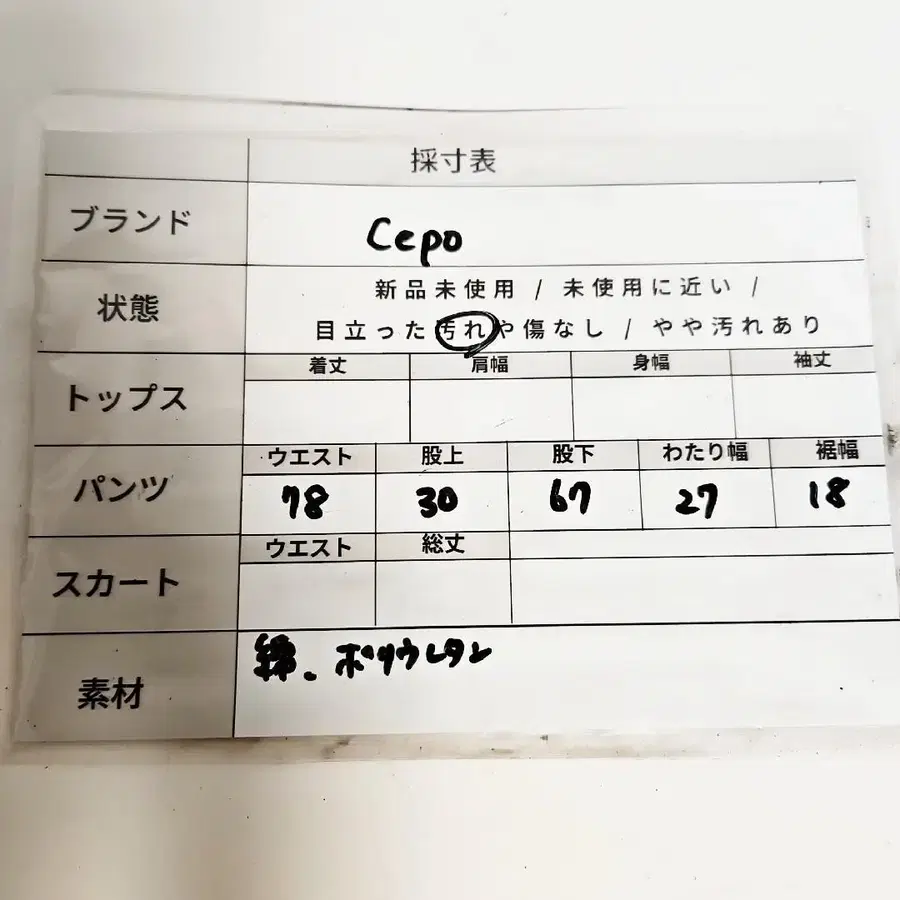 採寸表
ブランド
Cepo
状態
新品未使用 / 未使用に近い /
目立った汚れや傷なし / やや汚れあり
トップス
着丈 肩幅 身幅 袖丈
パンツ
ウエスト 股上 股下 わたり幅 裾幅
78 30 67 27 18
スカート
ウエスト 総丈
素材
綿. ポリウレタン